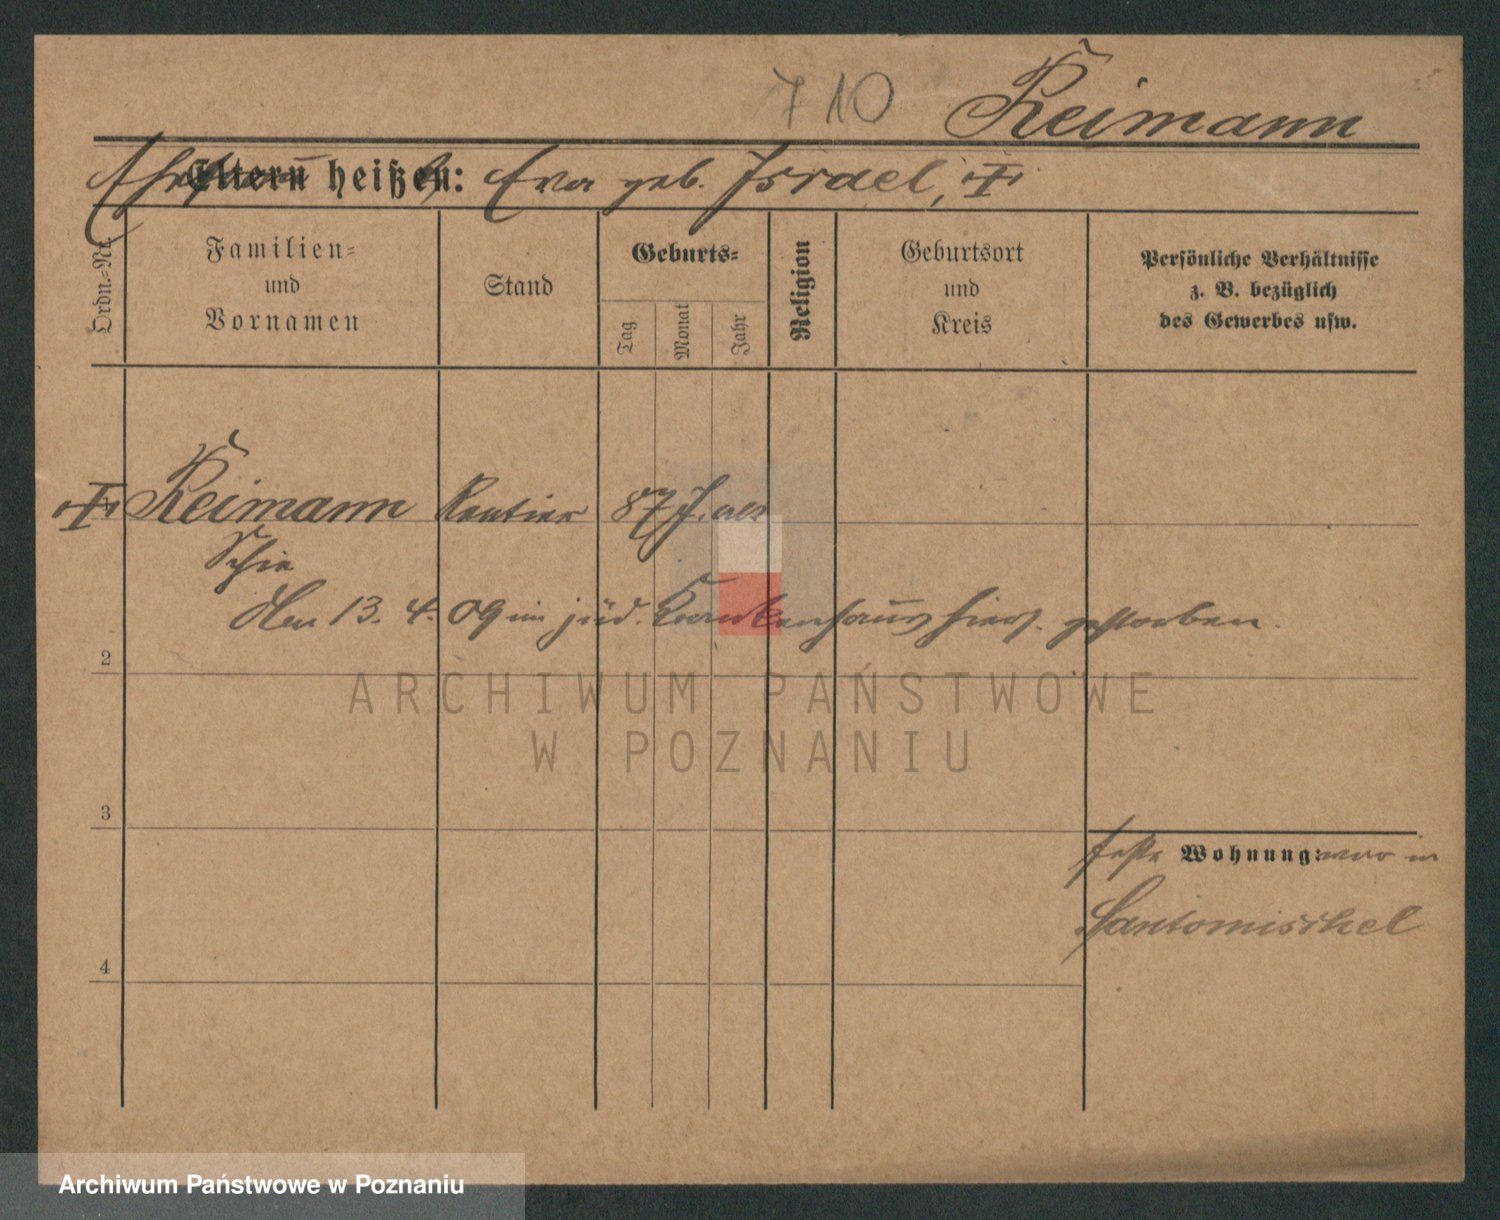 710 Reimann
Ehefrau Eltern heißen: Eva geb. Israel, †
Ordn.-Nr.
Familien-
und
Vornamen
Stand
Geburts-
Tag
Monat
Jahr
Religion
Geburtsort
und
Kreis
Persönliche Verhältnisse
z. B. bezüglich
des Gewerbes usw.
† Reimann Rentier 87 J. alt
Schie
Am 13. 4. 09 im jüd. Krankenhaus hiers. gestorben.
2
ARCHIWUM PAŃSTWOWE
W POZNANIU
3
feste Wohnung: war in
Santomischel
4
Archiwum Państwowe w Poznaniu